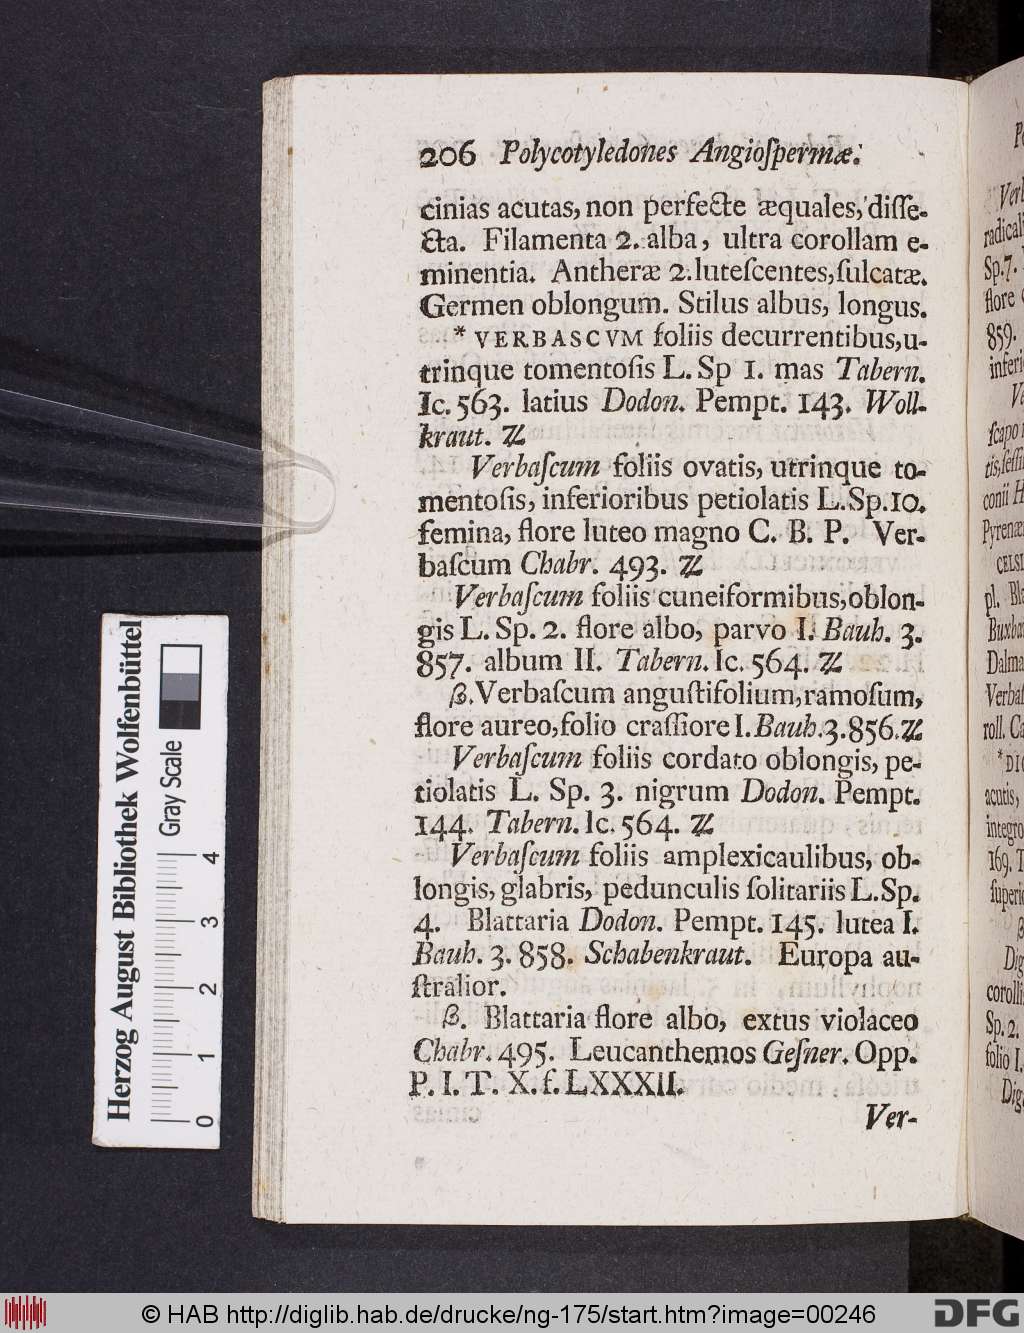 206 Polycotyledones Angioſpermæ.
cinias acutas, non perfecte æquales, diſſe-
cta. Filamenta 2. alba, ultra corollam e-
minentia. Antheræ 2. luteſcentes, ſulcatæ.
Germen oblongum. Stilus albus, longus.
* VERBASCVM foliis decurrentibus, u-
trinque tomentoſis L. Sp 1. mas Tabern.
Ic. 563. latius Dodon. Pempt. 143. Woll-
kraut. ♃
Verbaſcum foliis ovatis, utrinque to-
mentoſis, inferioribus petiolatis L. Sp. 10.
femina, flore luteo magno C. B. P. Ver-
baſcum Chabr. 493. ♃
Verbaſcum foliis cuneiformibus, oblon-
gis L. Sp. 2. flore albo, parvo I. Bauh. 3.
857. album II. Tabern. Ic. 564. ♃
β. Verbaſcum anguſtifolium, ramoſum,
flore aureo, folio craſſiore I. Bauh. 3. 856. ♃
Verbaſcum foliis cordato oblongis, pe-
tiolatis L. Sp. 3. nigrum Dodon. Pempt.
144. Tabern. Ic. 564. ♃
Verbaſcum foliis amplexicaulibus, ob-
longis, glabris, pedunculis ſolitariis L. Sp.
4. Blattaria Dodon. Pempt. 145. lutea I.
Bauh. 3. 858. Schabenkraut. Europa au-
ſtralior.
β. Blattaria flore albo, extus violaceo
Chabr. 495. Leucanthemos Geſner. Opp.
P. I. T. X. f. LXXXII.
Ver-
radical
Sp. 7.
flore
859.
inferi
ſcapo
conii H
Pyrenæ
CELSI
pl. Bla
Buxba
Dalma
Verbaſ
roll. Ca
* DIG
acutis,
integro
169. T
ſuperio
β
Dig
corolli
Sp. 2.
folio I.
Dig
Herzog August Bibliothek Wolfenbüttel
Gray Scale
0 1 2 3 4
© HAB http://diglib.hab.de/drucke/ng-175/start.htm?image=00246
DFG